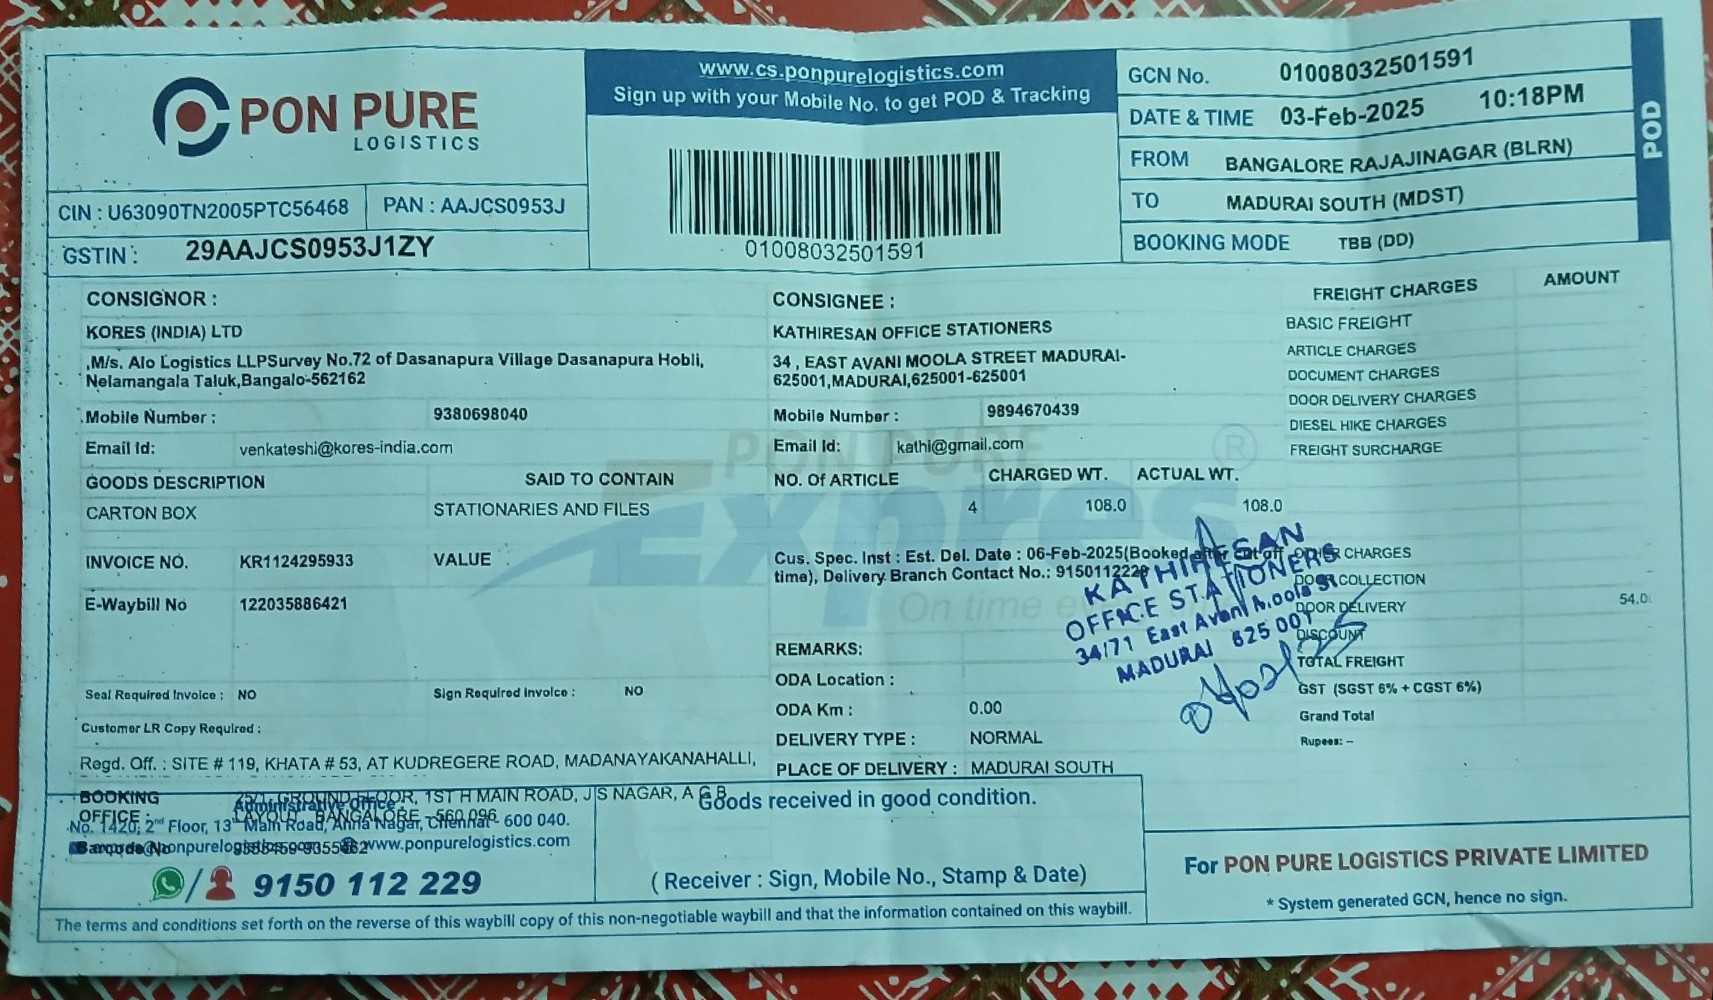 PON PURE
LOGISTICS
CIN : U63090TN2005PTC56468
PAN : AAJCS0953J
GSTIN : 29AAJCS0953J1ZY
www.cs.ponpurelogistics.com
Sign up with your Mobile No. to get POD & Tracking
01008032501591
GCN No. 01008032501591
DATE & TIME 03-Feb-2025 10:18PM
FROM BANGALORE RAJAJINAGAR (BLRN)
TO MADURAI SOUTH (MDST)
BOOKING MODE TBB (DD)
POD
CONSIGNOR :
KORES (INDIA) LTD
,M/s. Alo Logistics LLPSurvey No.72 of Dasanapura Village Dasanapura Hobli,
Nelamangala Taluk,Bangalo-562162
Mobile Number : 9380698040
Email Id: venkateshi@kores-india.com
CONSIGNEE :
KATHIRESAN OFFICE STATIONERS
34 , EAST AVANI MOOLA STREET MADURAI-
625001,MADURAI,625001-625001
Mobile Number : 9894670439
Email Id: kathi@gmail.com
FREIGHT CHARGES AMOUNT
BASIC FREIGHT
ARTICLE CHARGES
DOCUMENT CHARGES
DOOR DELIVERY CHARGES
DIESEL HIKE CHARGES
FREIGHT SURCHARGE
PON PURE
Expres
On time e
GOODS DESCRIPTION SAID TO CONTAIN NO. Of ARTICLE CHARGED WT. ACTUAL WT.
CARTON BOX STATIONARIES AND FILES 4 108.0 108.0
INVOICE NO. KR1124295933 VALUE
E-Waybill No 122035886421
Cus. Spec. Inst : Est. Del. Date : 06-Feb-2025(Booked after cut off
time), Delivery Branch Contact No.: 9150112229
OTHER CHARGES
DOOR COLLECTION
DOOR DELIVERY 54.0
DISCOUNT
TOTAL FREIGHT
GST (SGST 6% + CGST 6%)
Grand Total
Rupees: --
KATHIRESAN
OFFICE STATIONERS
34/71 East Avani Moola St
MADURAI 625 001
REMARKS:
ODA Location :
ODA Km : 0.00
DELIVERY TYPE : NORMAL
PLACE OF DELIVERY : MADURAI SOUTH
Seal Required Invoice : NO Sign Required Invoice : NO
Customer LR Copy Required :
Regd. Off. : SITE # 119, KHATA # 53, AT KUDREGERE ROAD, MADANAYAKANAHALLI,
BOOKING OFFICE : 25/1, GROUND FLOOR, 1ST H MAIN ROAD, J S NAGAR, A G B
LAYOUT, BANGALORE - 560 096
Administrative Office :
No. 1420, 2nd Floor, 13th Main Road, Anna Nagar, Chennai - 600 040.
Barcode No
www.ponpurelogistics.com
9150 112 229
Goods received in good condition.
( Receiver : Sign, Mobile No., Stamp & Date)
For PON PURE LOGISTICS PRIVATE LIMITED
* System generated GCN, hence no sign.
The terms and conditions set forth on the reverse of this waybill copy of this non-negotiable waybill and that the information contained on this waybill.